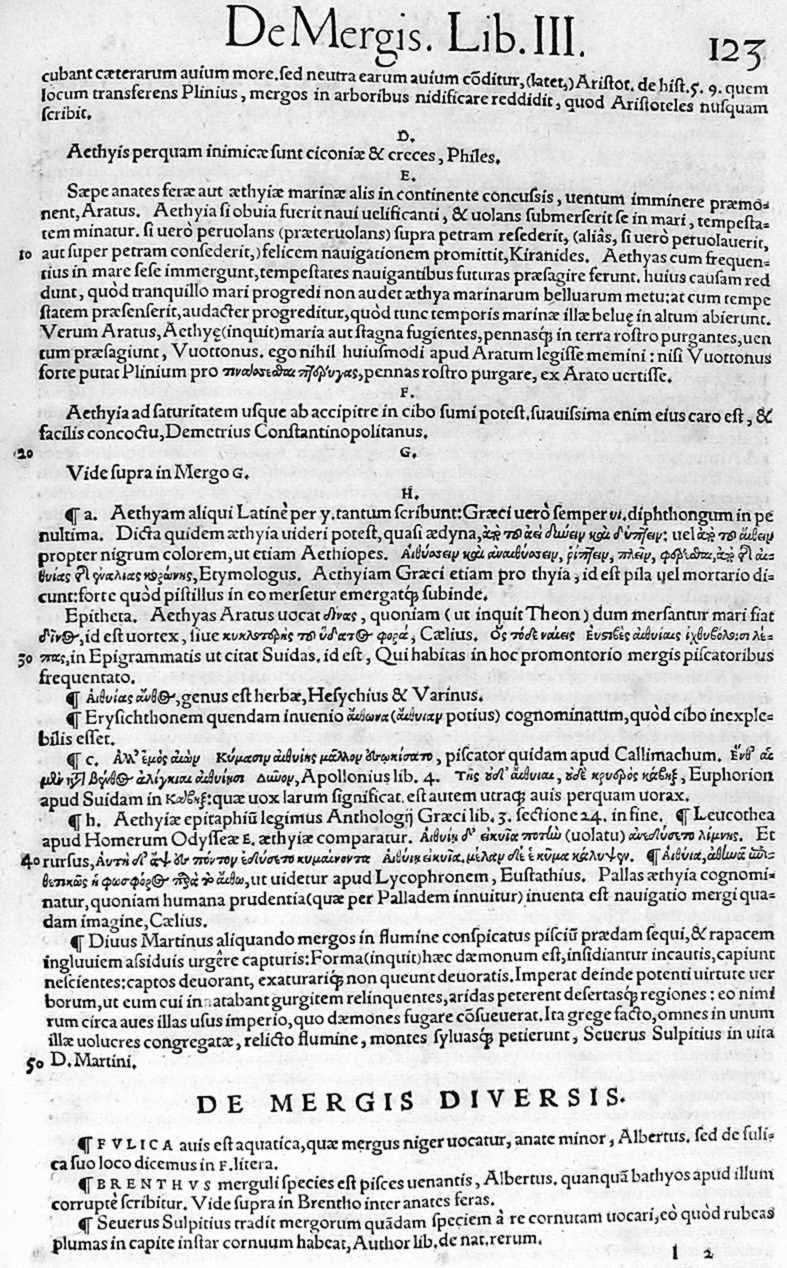 De Mergis. Lib. III. 123
cubant cæterarum auium more. sed neutra earum auium cõditur, (latet,) Aristot. de hist. 5. 9. quem
locum transferens Plinius, mergos in arboribus nidificare reddidit, quod Aristoteles nusquam
scribit.
D.
Aethyis perquam inimicæ sunt ciconiæ & creces, Philes.
E.
Sæpe anates feræ aut æthyiæ marinæ alis in continente concussis, uentum imminere præmo-
nent, Aratus. Aethyia si obuia fuerit naui uelificanti, & uolans submerserit se in mari, tempesta-
tem minatur. si uerò peruolans (præteruolans) supra petram resederit, (aliâs, si uerò peruolauerit,
10 aut super petram consederit,) felicem nauigationem promittit, Kiranides. Aethyas cum frequen-
tius in mare sese immergunt, tempestates nauigantibus futuras præsagire ferunt. huius causam red
dunt, quòd tranquillo mari progredi non audet æthya marinarum belluarum metu: at cum tempe
statem præsenserit, audacter progreditur, quòd tunc temporis marinæ illæ beluę in altum abierunt.
Verum Aratus, Aethyę (inquit) maria aut stagna fugientes, pennasq́; in terra rostro purgantes, uen
tum præsagiunt, Vuottonus. ego nihil huiusmodi apud Aratum legisse memini: nisi Vuottonus
forte putat Plinium pro τινάσσεσθαι πτέρυγας, pennas rostro purgare, ex Arato uertisse.
F.
Aethyia ad saturitatem usque ab accipitre in cibo sumi potest. suauissima enim eius caro est, &
facilis concoctu, Demetrius Constantinopolitanus.
20 G.
Vide supra in Mergo G.
H.
¶ a. Aethyam aliqui Latinè per y. tantum scribunt: Græci uerò semper ui. diphthongum in pe
nultima. Dicta quidem æthyia uideri potest, quasi ædyna, uel
propter nigrum colorem, ut etiam Aethiopes.
Etymologus. Aethyiam Græci etiam pro thyia, id est pila uel mortario di-
cunt: forte quòd pistillus in eo mersetur emergatq́; subinde.
Epitheta. Aethyas Aratus uocat δίνας, quoniam (ut inquit Theon) dum mersantur mari fiat
δῖνος, id est uortex, siue κυκλοτερὴς τοῦ ὕδατος φορά, Cælius. Ὃς τόδε ναίεις Εὐστιβὲς αἰθυίαις ἰχθυβόλοισι λέ-
30 πας, in Epigrammatis ut citat Suidas. id est, Qui habitas in hoc promontorio mergis piscatoribus
frequentato.
¶ Αἰθυίας ἄνθος, genus est herbæ, Hesychius & Varinus.
¶ Erysichthonem quendam inuenio αἴθωνα (αἴθυιαν potius) cognominatum, quòd cibo inexple-
bilis esset.
¶ c. Κύμασιν αἰθυίης μᾶλλον ἐσῳκίσατο, piscator quidam apud Callimachum.
Apollonius lib. 4. Euphorion
apud Suidam in Κάβηξ: quæ uox larum significat. est autem utraq; auis perquam uorax.
¶ h. Aethyiæ epitaphiũ legimus Anthologij Græci lib. 3. sectione 24. in fine. ¶ Leucothea
apud Homerum Odysseæ E. æthyiæ comparatur. Αἰθυίῃ δ' εἰκυῖα ποτῇ (uolatu) ἀνεδύσετο λίμνης. Et
40 rursus, Αὐτὴ δ' ἂψ ἐς πόντον ἐδύσετο κυμαίνοντα Αἰθυίῃ εἰκυῖα. μέλαν δέ ἑ κῦμα κάλυψεν. ¶ Αἴθυια, ἀθηνᾶ ἐπι-
θετικῶς ἡ φωσφόρος παρὰ τὸ αἴθω, ut uidetur apud Lycophronem, Eustathius. Pallas æthyia cognomi-
natur, quoniam humana prudentia (quæ per Palladem innuitur) inuenta est nauigatio mergi qua-
dam imagine, Cælius.
¶ Diuus Martinus aliquando mergos in flumine conspicatus pisciũ prædam sequi, & rapacem
ingluuiem assiduis urgêre capturis: Forma (inquit) hæc dæmonum est, insidiantur incautis, capiunt
nescientes: captos deuorant, exaturariq́; non queunt deuoratis. Imperat deinde potenti uirtute uer
borum, ut eum cui innatabant gurgitem relinquentes, aridas peterent desertasq́; regiones: eo nimi
rum circa aues illas usus imperio, quo dæmones fugare cõsueuerat. Ita grege facto, omnes in unum
illæ uolucres congregatæ, relicto flumine, montes syluasq́; petierunt, Seuerus Sulpitius in uita
50 D. Martini.
DE MERGIS DIVERSIS.
¶ FVLICA auis est aquatica, quæ mergus niger uocatur, anate minor, Albertus. sed de fuli-
ca suo loco dicemus in F. litera.
¶ BRENTHVS merguli species est pisces uenantis, Albertus. quanquã bathyos apud illum
corruptè scribitur. Vide supra in Brentho inter anates feras.
¶ Seuerus Sulpitius tradit mergorum quãdam speciem à re cornutam uocari, eò quòd rubeas
plumas in capite instar cornuum habeat, Author lib. de nat. rerum.
l 2